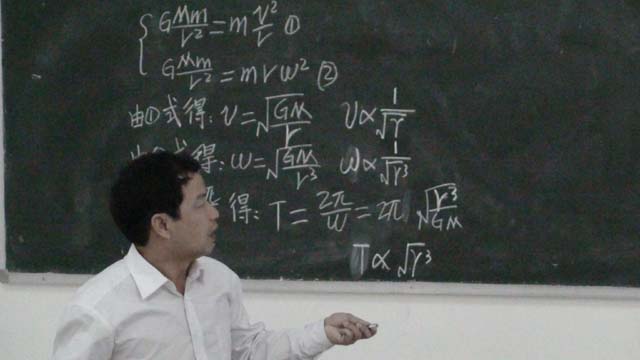 { G Mm/r² = m v²/r ①
G Mm/r² = m r ω² ②
由①式得: v = √(GM/r) v ∝ 1/√r
式得: ω = √(GM/r³) ω ∝ 1/√r³
得: T = 2π/ω = 2π √(r³/GM)
T ∝ √r³